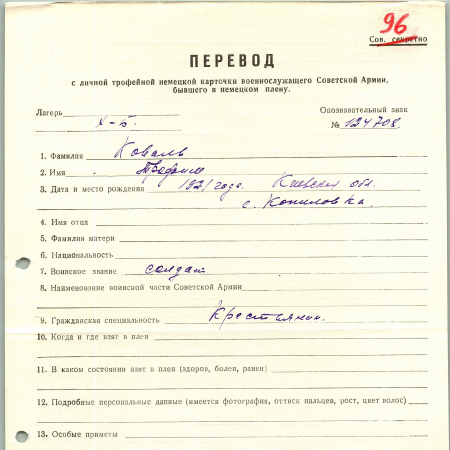 96
Сов. секретно
ПЕРЕВОД
с личной трофейной немецкой карточки военнослужащего Советской Армии,
бывшего в немецком плену.
Лагерь X-Б.
Опознавательный знак
№ 124708.
1. Фамилия Коваль
2. Имя Трофим
3. Дата и место рождения 1921 года. Киевская обл.
с. Копиловка
4. Имя отца
5. Фамилия матери
6. Национальность
7. Воинское звание солдат
8. Наименование воинской части Советской Армии
9. Гражданская специальность Крестьянин.
10. Когда и где взят в плен
11. В каком состоянии взят в плен (здоров, болен, ранен)
12. Подробные персональные данные (имеется фотография, оттиск пальцев, рост, цвет волос)
13. Особые приметы